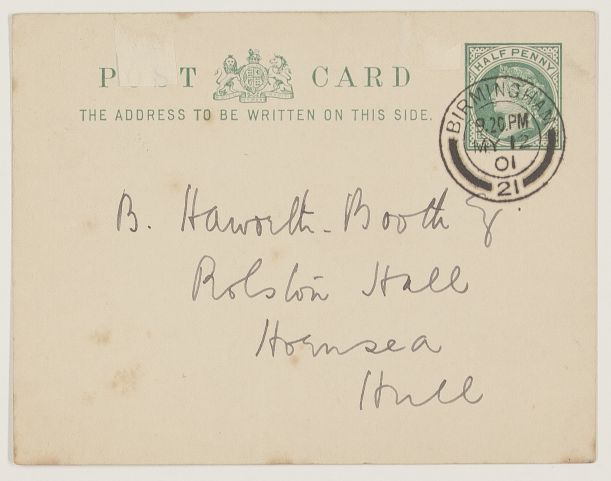 POST CARD
THE ADDRESS TO BE WRITTEN ON THIS SIDE.
HALF PENNY
BIRMINGHAM
9.20.PM
MY 12
01
21
B. Haworth-Booth
Rolston Hall
Hornsea
Hull